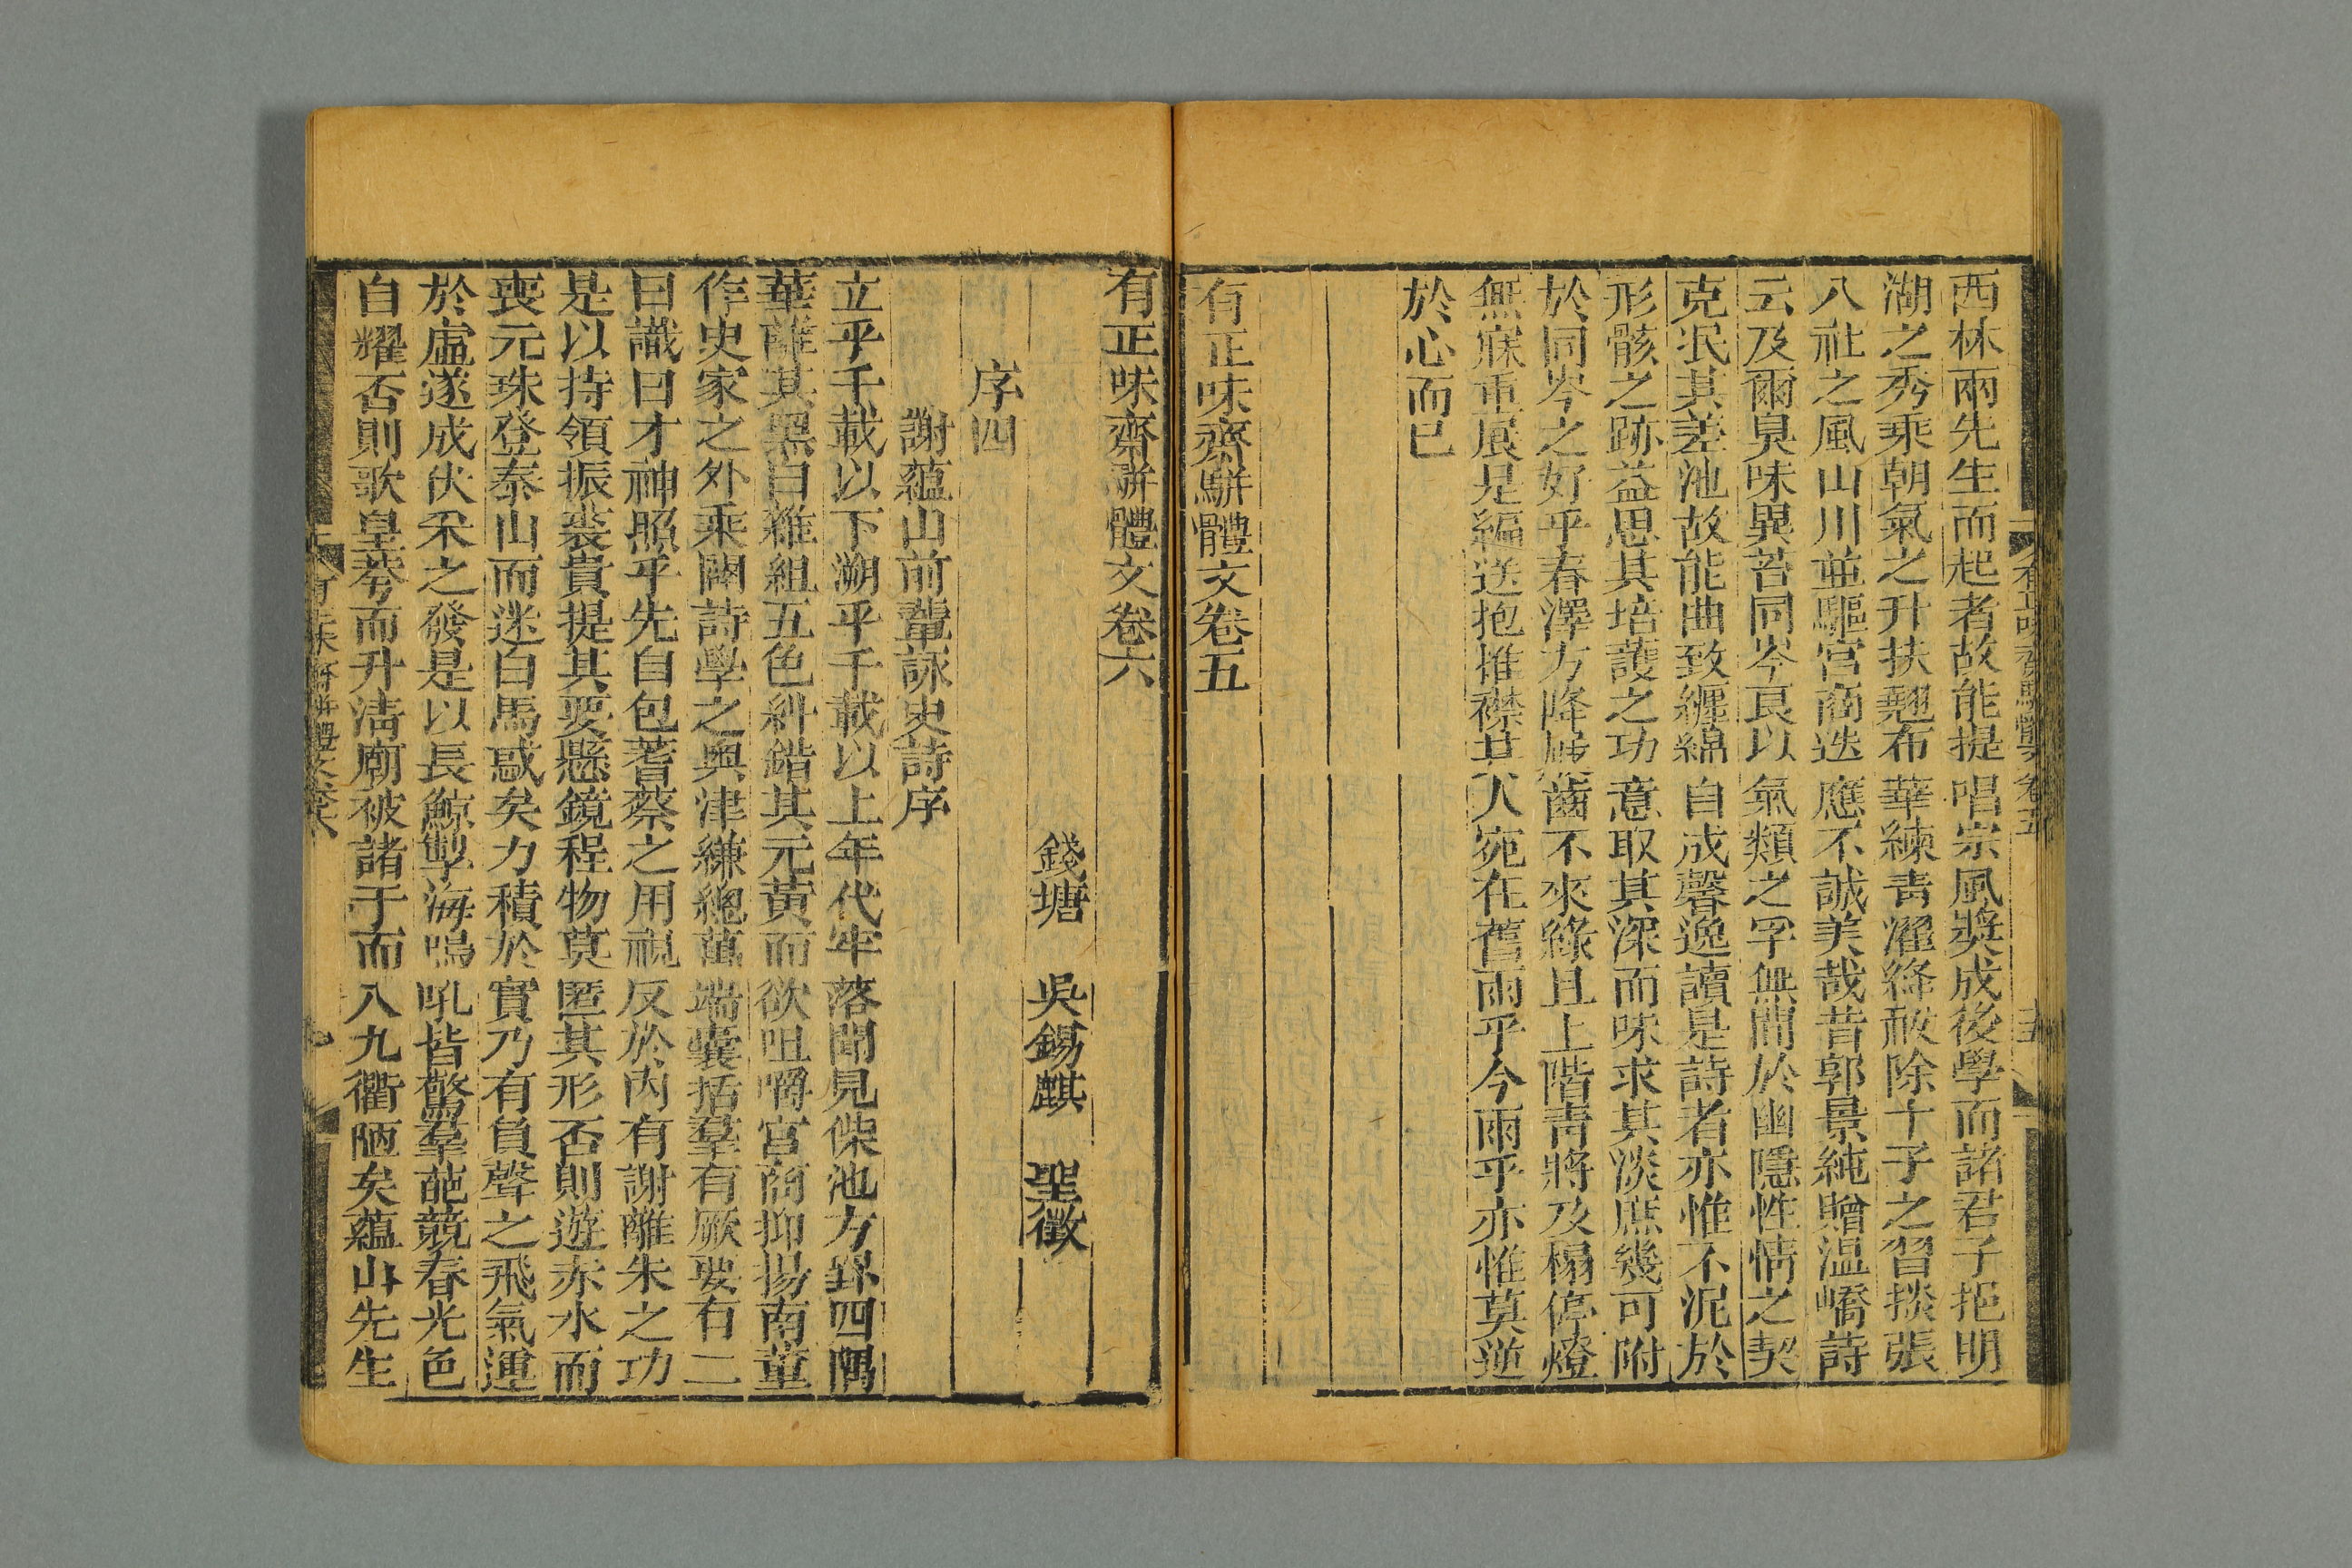 西林兩先生而起者故能提唱宗風奬成後學而諸君子挹明
湖之秀乘朝氣之升扶翹布華練靑濯絳祓除十子之習掞張
八社之風山川並驅宮商迭應不誠美哉昔郭景純贈温嶠詩
云及爾臭味異苔同岑良以氣類之孚無閒於幽隱性情之契
克泯其差池故能曲致纒綿自成馨逸讀是詩者亦惟不泥於
形骸之跡益思其培護之功意取其深而味求其淡庶幾可附
於同岑之好乎春澤方降屐齒不來綠且上階靑將及榻停燈
無寐重展是編送抱推襟其人宛在舊雨乎今雨乎亦惟莫逆
於心而已
有正味齋駢體文卷五
有正味齋駢體文卷六
錢塘 吳錫麒 聖徵
序四
謝蘊山前輩詠史詩序
立乎千載以下溯乎千載以上年代牢落聞見偨池方罫四隅
華離其黑白雜組五色糾錯其元黄而欲咀嚼宮商抑揚南董
作史家之外乘闢詩學之輿津縑緗萬端囊括羣有厥要有二
曰識曰才神照乎先自包蓍蔡之用視反於内有謝離朱之功
是以持領振裘貴提其要懸鏡程物莫匿其形否則遊赤水而
喪元珠登泰山而迷白馬惑矣力積於實乃有負聲之飛氣運
於虛遂成伏釆之發是以長鯨掣海嗚吼皆驚羣葩競春光色
自耀否則歌皇荂而升淸廟被諸于而八九衢陋矣蘊山先生